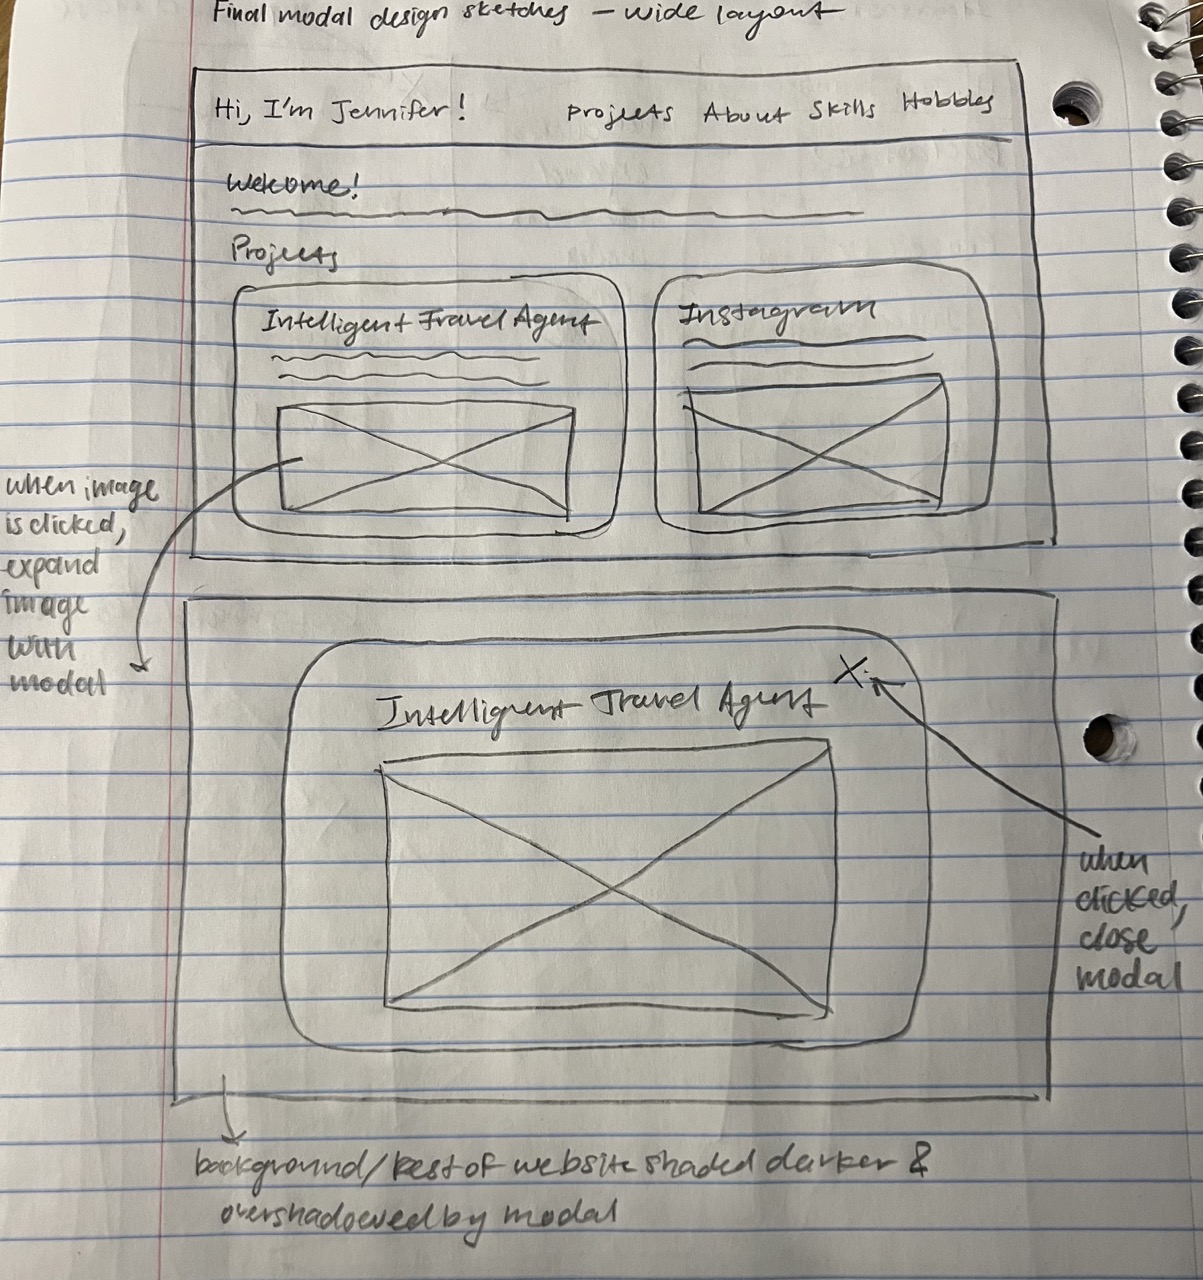 Final modal design sketches - wide layout
Hi, I'm Jennifer!
Projects About Skills Hobbies
Welcome!
Projects
Intelligent Travel Agent
Instagram
when image
is clicked,
expand
image
with
modal
Intelligent Travel Agent
X
when
clicked,
close
modal
background/rest of website shaded darker &
overshadowed by modal